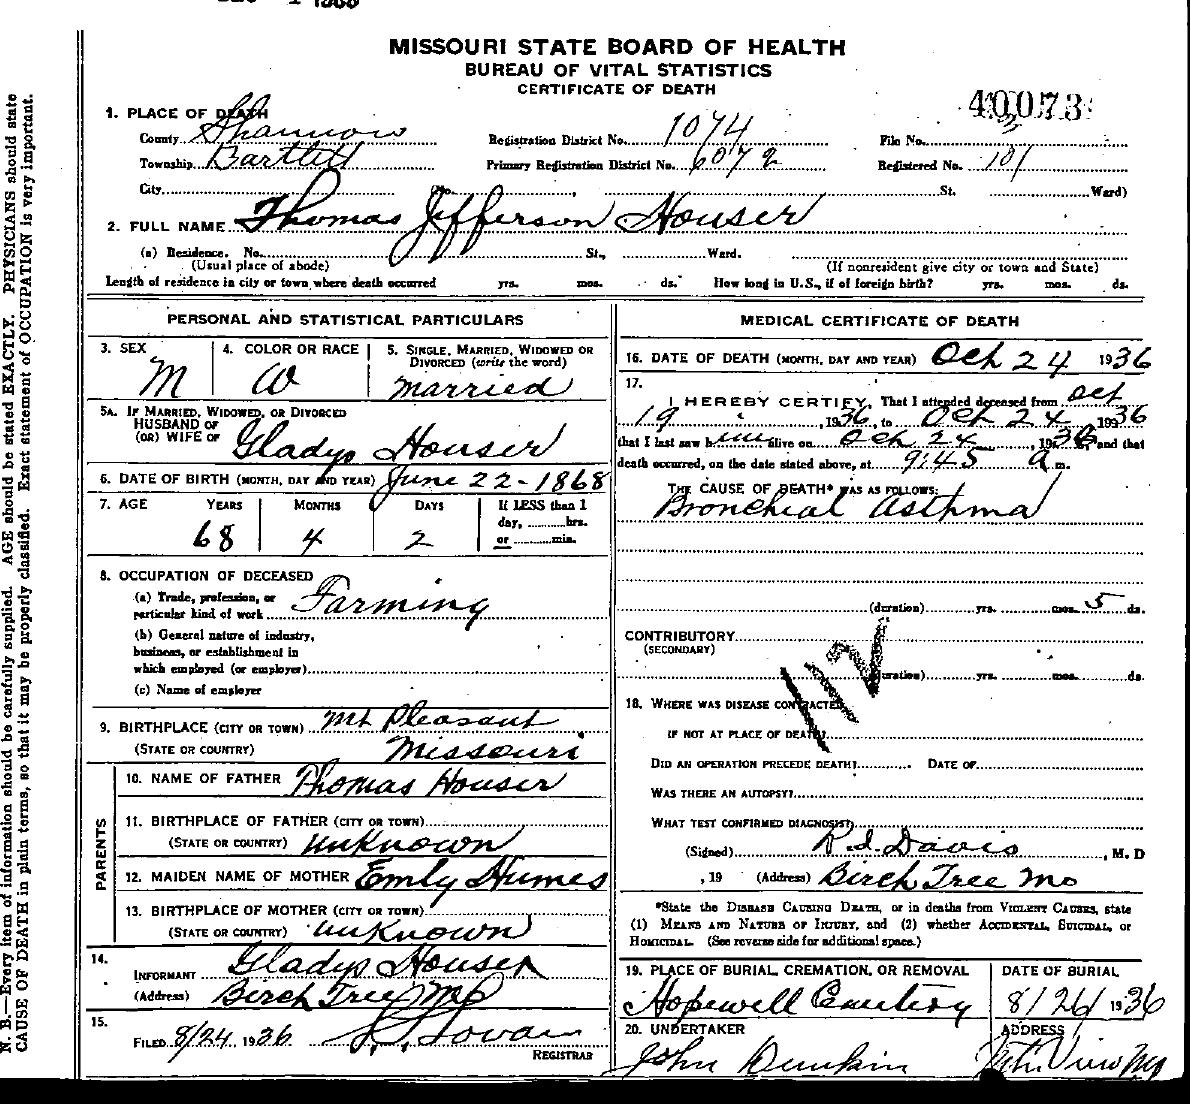 1936
MISSOURI STATE BOARD OF HEALTH
BUREAU OF VITAL STATISTICS
CERTIFICATE OF DEATH
40073
1. PLACE OF DEATH
County Shannon Registration District No. 1074 File No.
Township Bartlett Primary Registration District No. 6072 Registered No. 101
City No. St. Ward)
2. FULL NAME Thomas Jefferson Houser
(a) Residence. No. St., Ward.
(Usual place of abode) (If nonresident give city or town and State)
Length of residence in city or town where death occurred yrs. mos. ds. How long in U.S., if of foreign birth? yrs. mos. ds.
PERSONAL AND STATISTICAL PARTICULARS
3. SEX 4. COLOR OR RACE 5. SINGLE, MARRIED, WIDOWED OR
DIVORCED (write the word)
M W married
5A. IF MARRIED, WIDOWED, OR DIVORCED
HUSBAND OF
(OR) WIFE OF Gladys Houser
6. DATE OF BIRTH (MONTH, DAY AND YEAR) June 22-1868
7. AGE YEARS MONTHS DAYS If LESS than 1
day, hrs.
68 4 2 or min.
8. OCCUPATION OF DECEASED
(a) Trade, profession, or
particular kind of work Farming
(b) General nature of industry,
business, or establishment in
which employed (or employer)
(c) Name of employer
9. BIRTHPLACE (CITY OR TOWN) Mt Pleasant
(STATE OR COUNTRY) Missouri
PARENTS
10. NAME OF FATHER Thomas Houser
11. BIRTHPLACE OF FATHER (CITY OR TOWN)
(STATE OR COUNTRY) Unknown
12. MAIDEN NAME OF MOTHER Emly Humes
13. BIRTHPLACE OF MOTHER (CITY OR TOWN)
(STATE OR COUNTRY) Unknown
14.
INFORMANT Gladys Houser
(Address) Birch Tree Mo
15.
FILED 8/24 1936
REGISTRAR
MEDICAL CERTIFICATE OF DEATH
16. DATE OF DEATH (MONTH, DAY AND YEAR) Oct 24 1936
17.
I HEREBY CERTIFY, That I attended deceased from Oct
19, 1936, to Oct 24 1936
that I last saw him alive on Oct 24, 1936, and that
death occurred, on the date stated above, at 9:45 a m.
THE CAUSE OF DEATH* WAS AS FOLLOWS:
Bronchial Asthma
(duration) yrs. mos. 5 ds.
CONTRIBUTORY
(SECONDARY)
112
(duration) yrs. mos. ds.
18. WHERE WAS DISEASE CONTRACTED
IF NOT AT PLACE OF DEATH?
DID AN OPERATION PRECEDE DEATH? DATE OF
WAS THERE AN AUTOPSY?
WHAT TEST CONFIRMED DIAGNOSIS?
(Signed) R.d. Davis, M. D
, 19 (Address) Birch Tree Mo
*State the DISEASE CAUSING DEATH, or in deaths from VIOLENT CAUSES, state
(1) MEANS AND NATURE OF INJURY, and (2) whether ACCIDENTAL, SUICIDAL, or
HOMICIDAL. (See reverse side for additional space.)
19. PLACE OF BURIAL, CREMATION, OR REMOVAL DATE OF BURIAL
Hopewell Cemetery 8/26/ 1936
20. UNDERTAKER ADDRESS
John Dunkin Mtn View Mo
N. B.—Every item of information should be carefully supplied. AGE should be stated EXACTLY. PHYSICIANS should state
CAUSE OF DEATH in plain terms, so that it may be properly classified. Exact statement of OCCUPATION is very important.